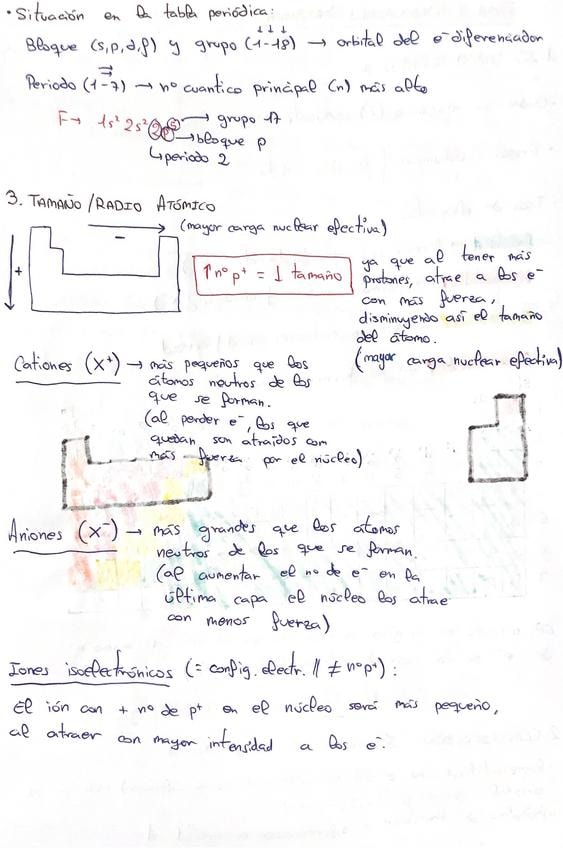 • Situación en la tabla periódica:
Bloque (s,p,d,f) y grupo (1-18) → orbital del e⁻ diferenciador
Periodo (1-7) → nº cuantico principal (n) más alto
F → 1s² 2s² 2p⁵ → grupo 17
→ bloque p
↳ periodo 2
3. TAMAÑO/RADIO ATÓMICO
(mayor carga nuclear efectiva)
−
+
↑nº p⁺ = ↓ tamaño
ya que al tener más
protones, atrae a los e⁻
con más fuerza,
disminuyendo así el tamaño
del átomo.
(mayor carga nuclear efectiva)
Cationes (X⁺) → más pequeños que los
átomos neutros de los
que se forman.
(al perder e⁻, los que
quedan son atraídos con
más fuerza por el núcleo)
Aniones (X⁻) → más grandes que los átomos
neutros de los que se forman.
(al aumentar el nº de e⁻ en la
última capa el núcleo los atrae
con menos fuerza)
Iones isoelectrónicos (= config. electr. // ≠ nº p⁺):
El ión con + nº de p⁺ en el núcleo será más pequeño,
al atraer con mayor intensidad a los e⁻.